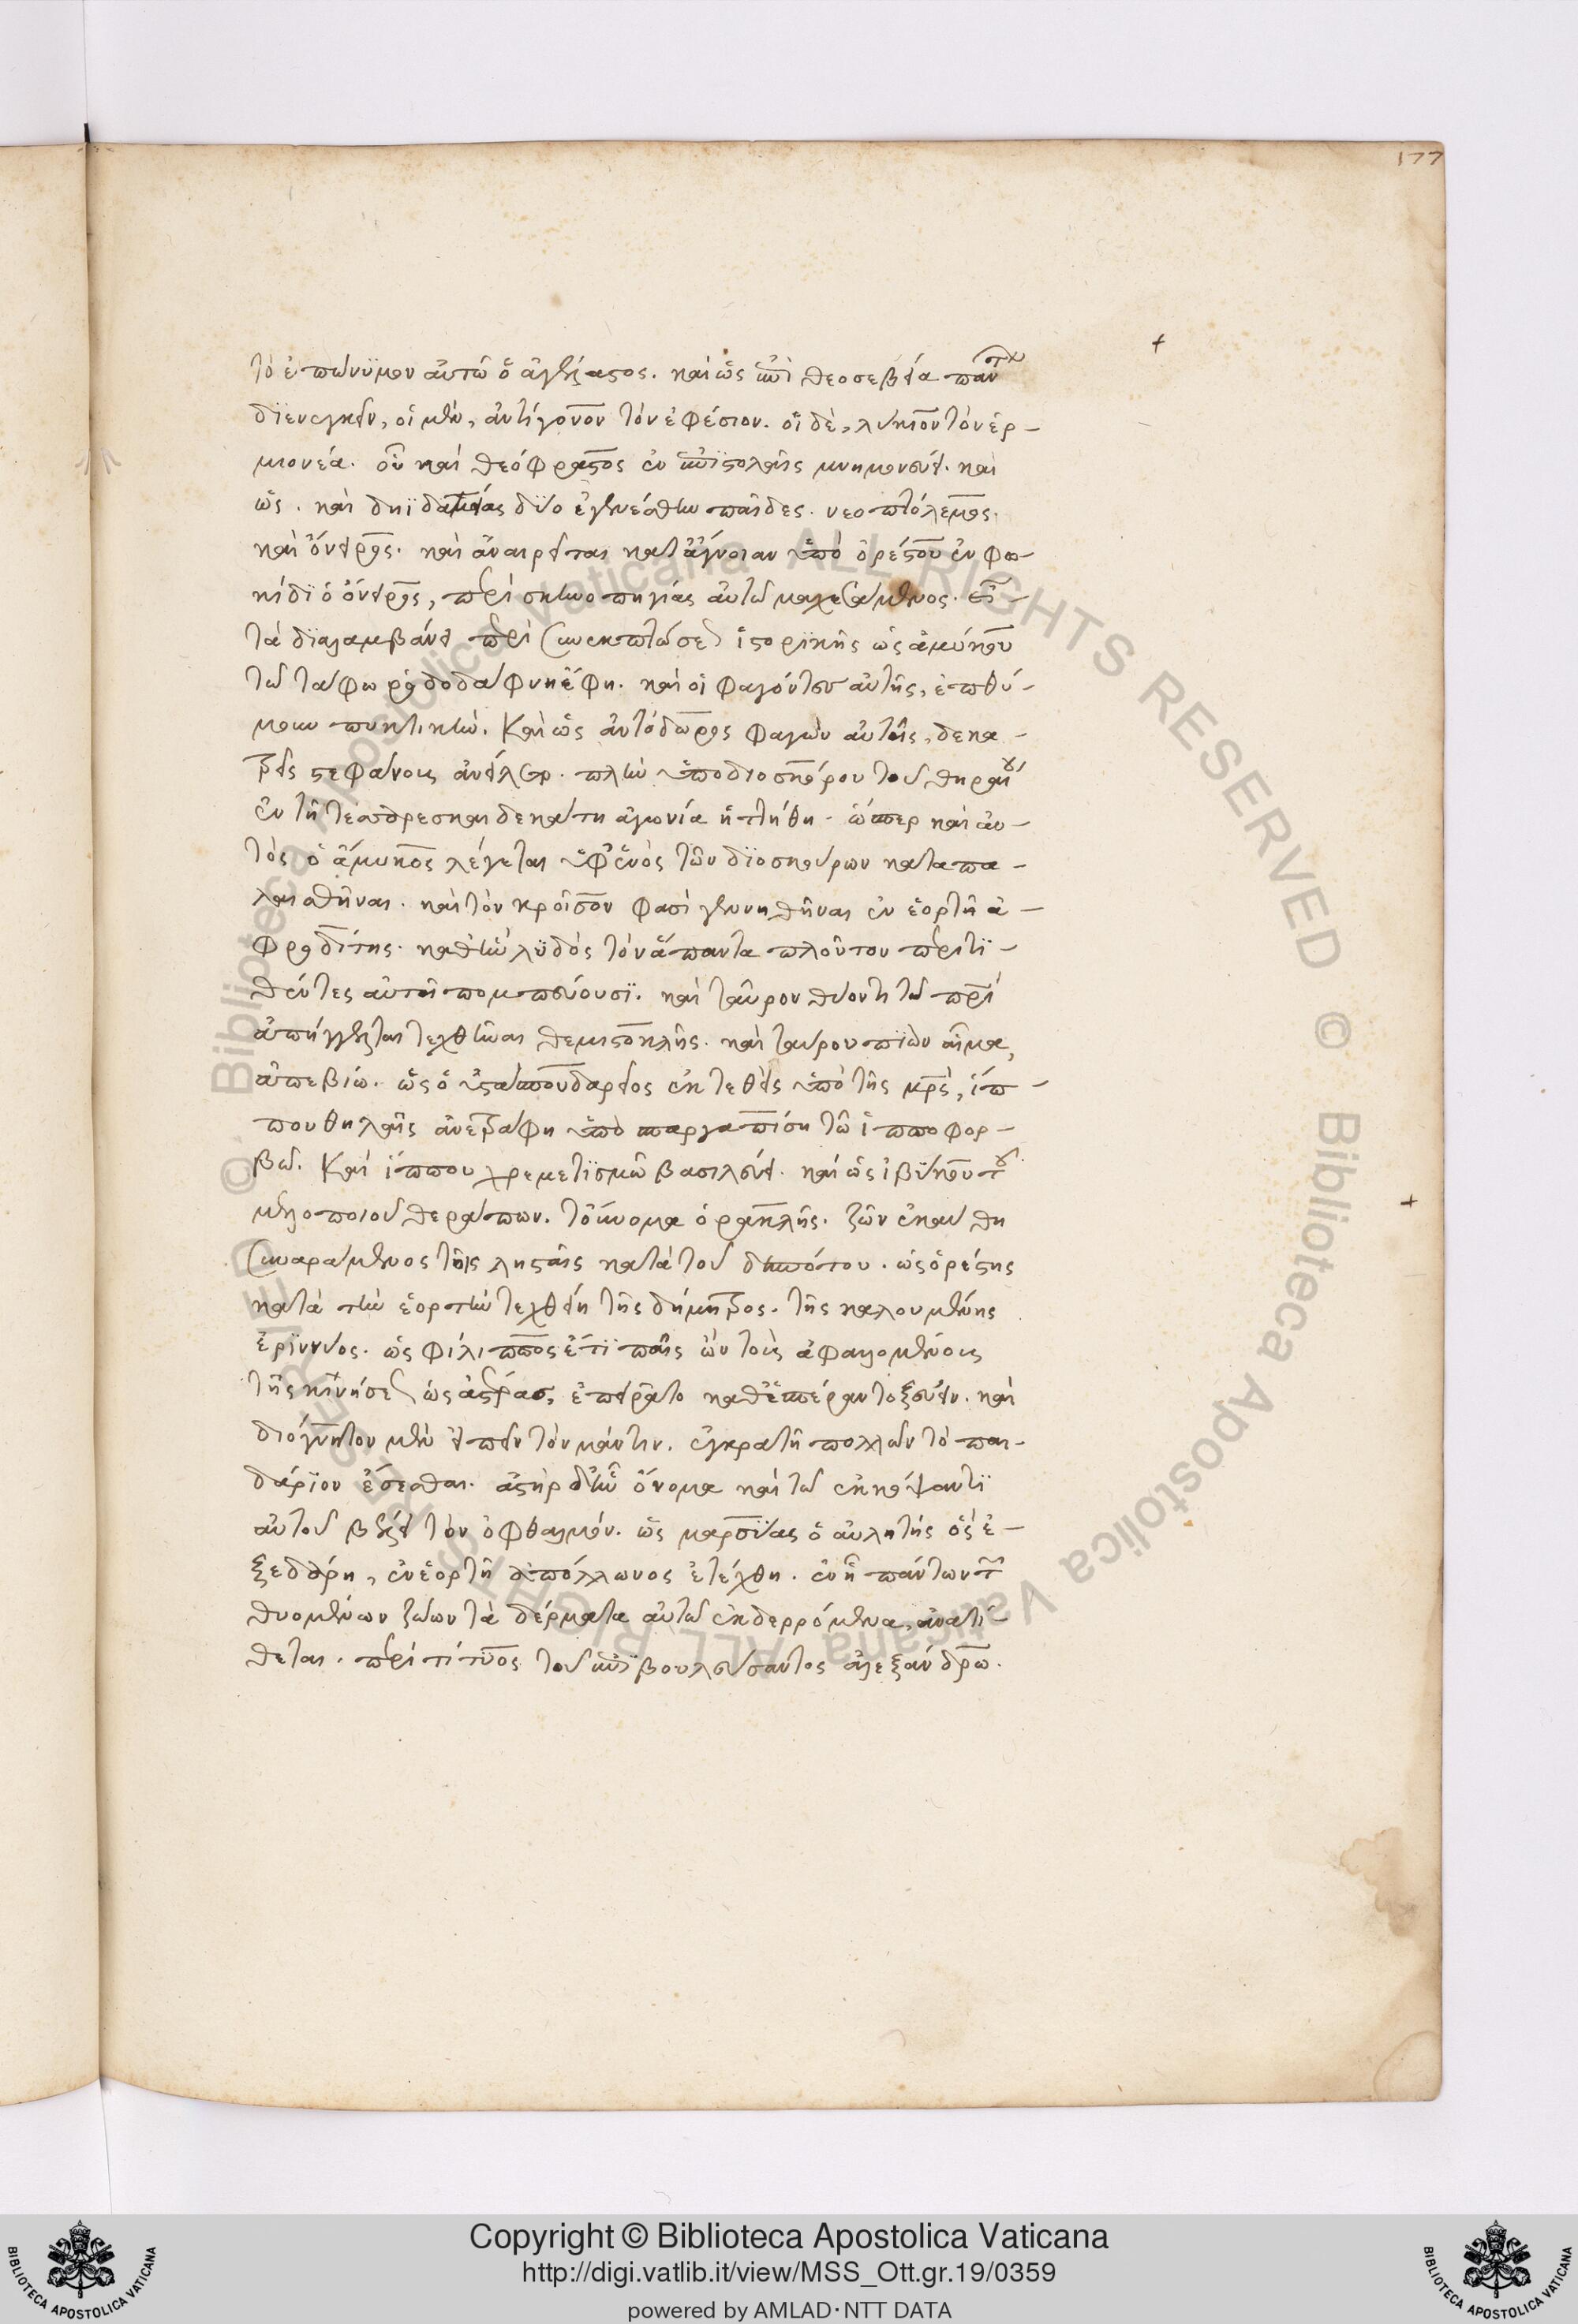 177
τὸ ἐπώνυμον αὐτῶ ὁ ἀγέλαστος. καὶ ὡς ἐπὶ θεοσεβεία πάντων
διενεγκεῖν, οἱ μὲν, ἀντίγονον τὸν ἐφέσιον. οἱ δὲ, λύκιον τὸν ἑρ-
μιονέα. οὗ καὶ θεόφραστος ἐν ἐπιστολαῖς μνημονεύει. καὶ
ὡς. καὶ δηϊδαμείας δύο ἐγενέσθην παῖδες. νεοπτόλεμος
καὶ ὄνειρος. καὶ ἀναιρεῖται κατ' ἄγνοιαν ὑπὸ ὀρέστου ἐν φω-
κίδι ὁ ὄνειρος, περὶ σκηνοπηγίας αὐτῶ μαχεσάμενος. εἶ-
τα διαλαμβάνει περὶ συνεμπτώσεως ἱστορικῆς ὡς ἀμύκου
τῶ τάφω ῥοδοδάφνη ἔφη. καὶ οἱ φαγόντες αὐτῆς, ἐπεθύ-
μουν πυκτικὴν. καὶ ὡς ἀντόδωρος φαγὼν αὐτῆς, δεκα-
τρεῖς στεφάνους ἀνείλετο. πλὴν ὑπὸ διοσκόρου τοῦ θηραίου
ἐν τῆ τεσσαρεσκαιδεκάτη ἀγωνία ἡττήθη. ὥσπερ καὶ αὐ-
τὸς ὁ ἄμυκος λέγεται ὑφ' ἑνὸς τῶν διοσκούρων καταπα-
λαισθῆναι. καὶ τὸν κροῖσον φασὶ γεννηθῆναι ἐν ἑορτῆ ἀ-
φροδίτης. καθ' ἣν λυδὸς τὸν ἅπαντα πλοῦτον περιτι-
θέντες αὐτῆ πομπεύουσι. καὶ ταῦρον θύοντι τῶ πατρὶ
ἀπήγγελται τεχθῆναι θεμιστοκλῆς. καὶ ταύρου πιὼν αἷμα,
ἀπεβίω. ὡς ὁ ὑστάσπου δαρεῖος ἐκτεθεὶς ὑπὸ τῆς μητρὸς, ἵπ-
που θηλαῖς ἀνετράφη ὑπὸ σπαργαπίση τῶ ἱπποφορ-
βῶ. καὶ ἵππου χρεμετισμῶ βασιλεύει. καὶ ὡς ἰβύκου τοῦ
μελοποιοῦ θεράπων. τοὔνομα ὁ ρακλῆς. ζῶν ἐκαύθη
συναράμενος τοῖς λησταῖς κατὰ τοῦ δεσπότου. ὡς ὀρέστης
κατὰ τὴν ἑορτὴν τεχθείη τῆς δήμητρος. τῆς καλουμένης
ἐριννύος. ὡς φίλιππος ἔτι παῖς ὢν τοὺς ἀφαλομένους
τῆς κινήσεως ὡς ἀστέρας, ἐπειρᾶτο καθ' ἑσπέραν τοξεύειν. καὶ
διόγνητον μὲν εἰπεῖν τὸν μάντιν. ἐγκρατῆ πολλῶν τὸ παι-
δάριον ἔσεσθαι. ἀστὴρ δ' ἦν ὄνομα καὶ τῶ ἐκκόψαντι
αὐτοῦ βέλει τὸν ὀφθαλμόν. ὡς μαρσύας ὁ αὐλητὴς ὃς ἐ-
ξεδάρη, ἐν ἑορτῆ ἀπόλλωνος ἐτέχθη. ἐν ᾗ πάντων τῶν
θυομένων ζώων τὰ δέρματα αὐτῶ ἐκδερρόμενα, ἀνατί-
θεται. περὶ τίτυος τοῦ ἐπιβουλεύσαντος ἀλεξάνδρω.
Copyright © Biblioteca Apostolica Vaticana
http://digi.vatlib.it/view/MSS_Ott.gr.19/0359
powered by AMLAD·NTT DATA
BIBLIOTECA APOSTOLICA VATICANA
BIBLIOTECA APOSTOLICA VATICANA
© Biblioteca Apostolica Vaticana ALL RIGHTS RESERVED © Biblioteca Apostolica Vaticana ALL RIGHTS RESERVED